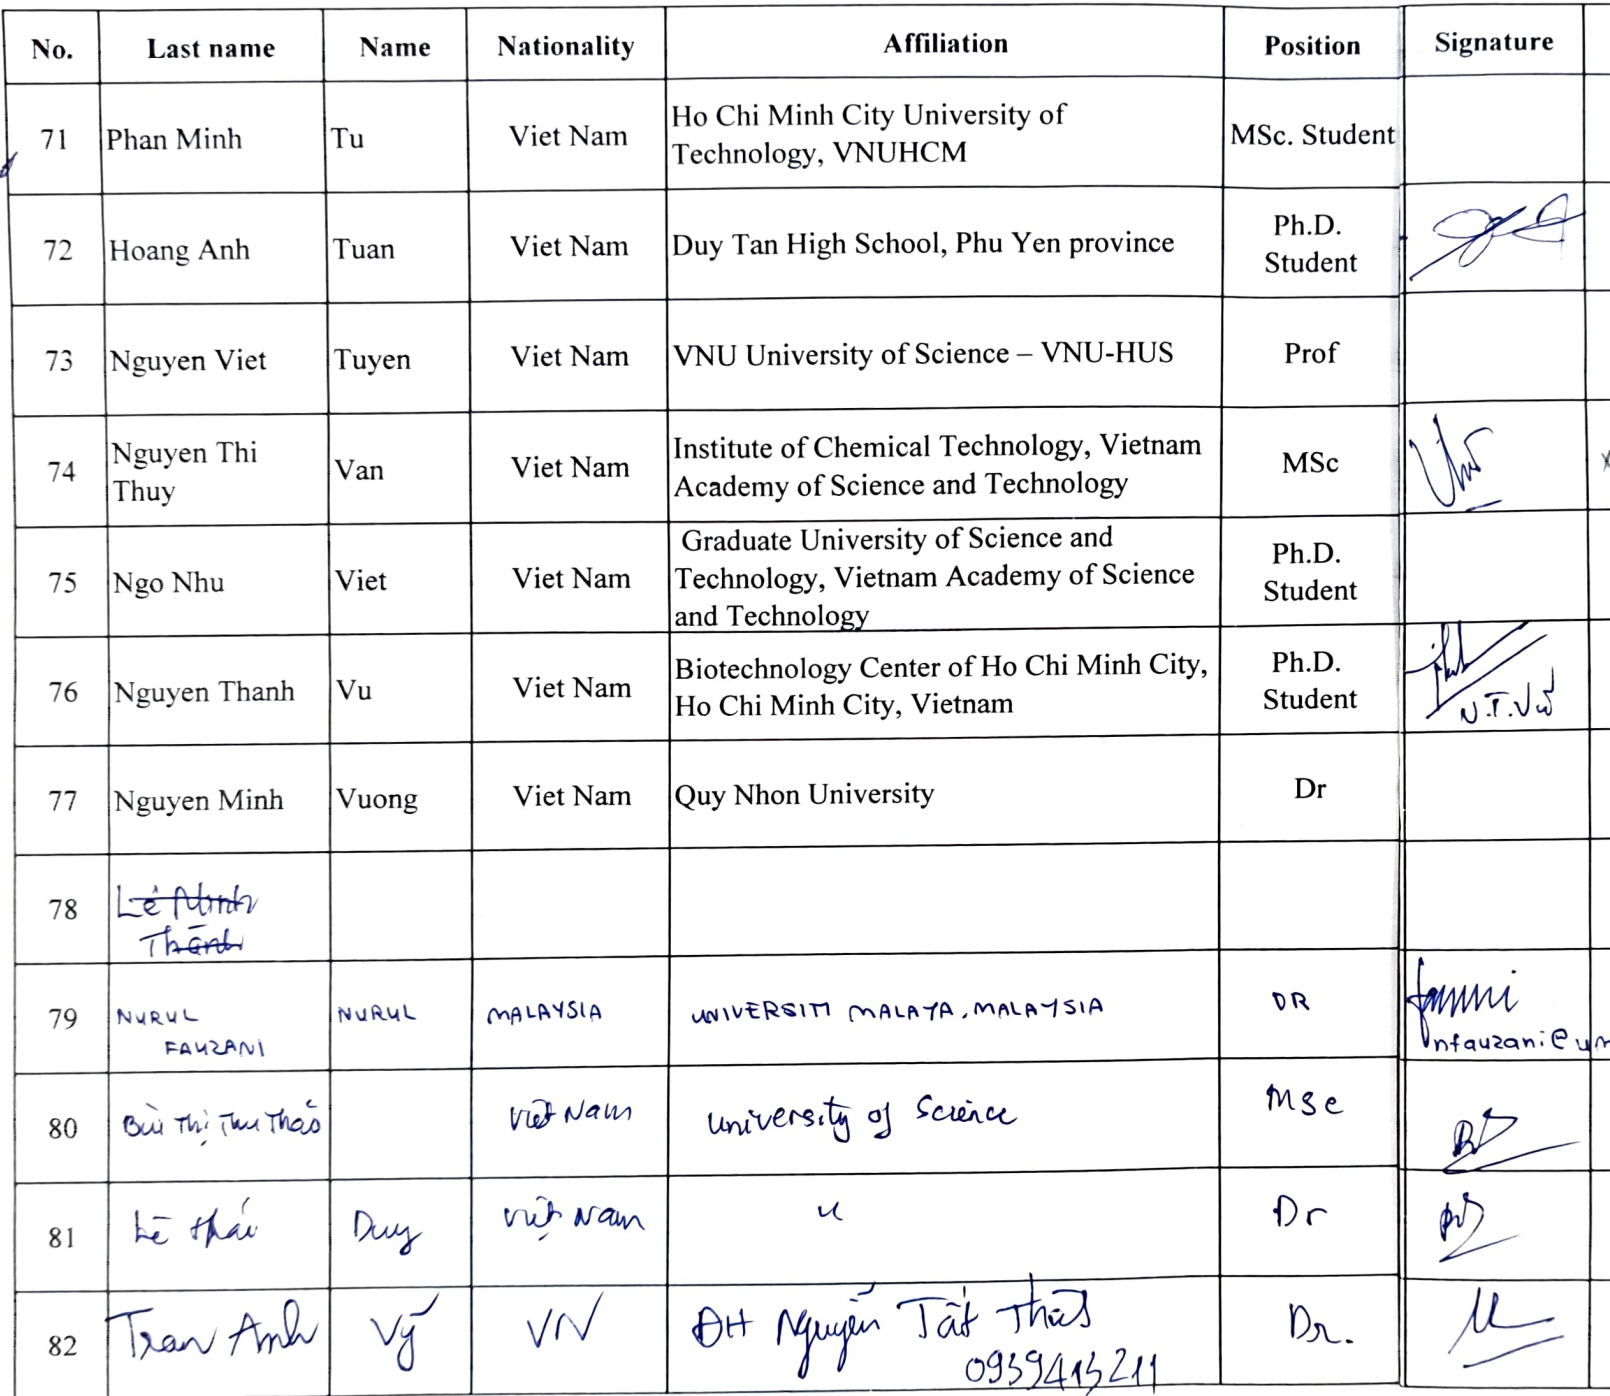 No. Last name Name Nationality Affiliation Position Signature
71 Phan Minh Tu Viet Nam Ho Chi Minh City University of Technology, VNUHCM MSc. Student
72 Hoang Anh Tuan Viet Nam Duy Tan High School, Phu Yen province Ph.D. Student
73 Nguyen Viet Tuyen Viet Nam VNU University of Science – VNU-HUS Prof
74 Nguyen Thi Thuy Van Viet Nam Institute of Chemical Technology, Vietnam Academy of Science and Technology MSc
75 Ngo Nhu Viet Viet Nam Graduate University of Science and Technology, Vietnam Academy of Science and Technology Ph.D. Student
76 Nguyen Thanh Vu Viet Nam Biotechnology Center of Ho Chi Minh City, Ho Chi Minh City, Vietnam Ph.D. Student N.T.Vũ
77 Nguyen Minh Vuong Viet Nam Quy Nhon University Dr
78 Lê Minh Thành
79 NURUL FAUZANI NURUL MALAYSIA UNIVERSITI MALAYA, MALAYSIA DR nfauzani@um
80 Bùi Thị Thu Thảo Việt Nam University of Science MSc
81 Lê Thái Duy Việt Nam Dr
82 Tran Anh Vỹ VN ĐH Nguyễn Tất Thành Dr.